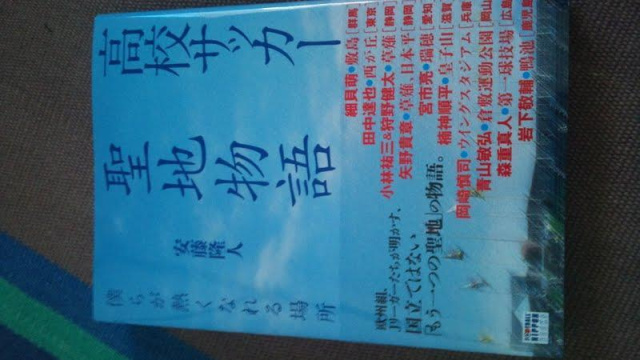 高校サッカー
聖地物語
安藤隆人
僕らが熱くなれる場所
細貝萌●敷島[群馬
田中達也●西が丘[東京
小林祐三&狩野健太●草薙[静岡
矢野貴章●草薙、日本平[静岡
宮市亮●瑞穂[愛知
楠神順平●皇子山[滋賀
岡崎慎司●ウイングスタジアム[兵庫
青山敏弘●倉敷運動公園[岡山
森重真人●第一球技場[広島
岩下敬輔●鴨池[鹿児島
欧州組、
Jリーガーたちが明かす、
国立ではない
「もう一つの聖地」の物語。